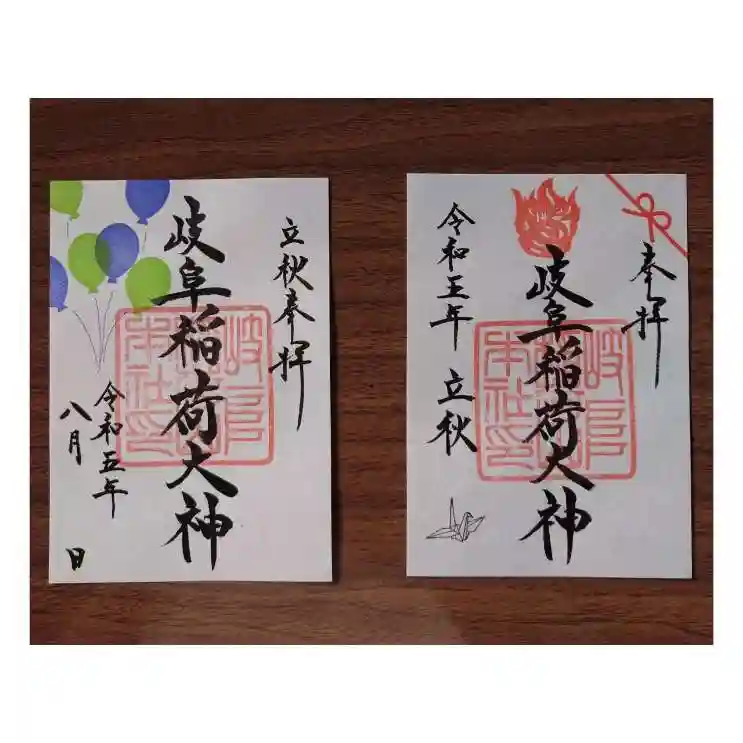 立秋奉拝
岐阜稲荷大神
令和五年
八月 日
岐阜稲荷本社印
奉拝
岐阜稲荷大神
令和五年 立秋
岐阜稲荷本社印